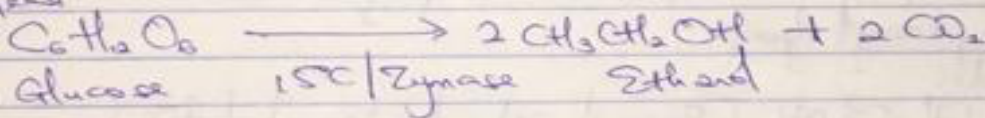 C₆H₁₂O₆ ⟶ 2 CH₃CH₂OH + 2 CO₂
Glucose 15°C/Zymase Ethanol